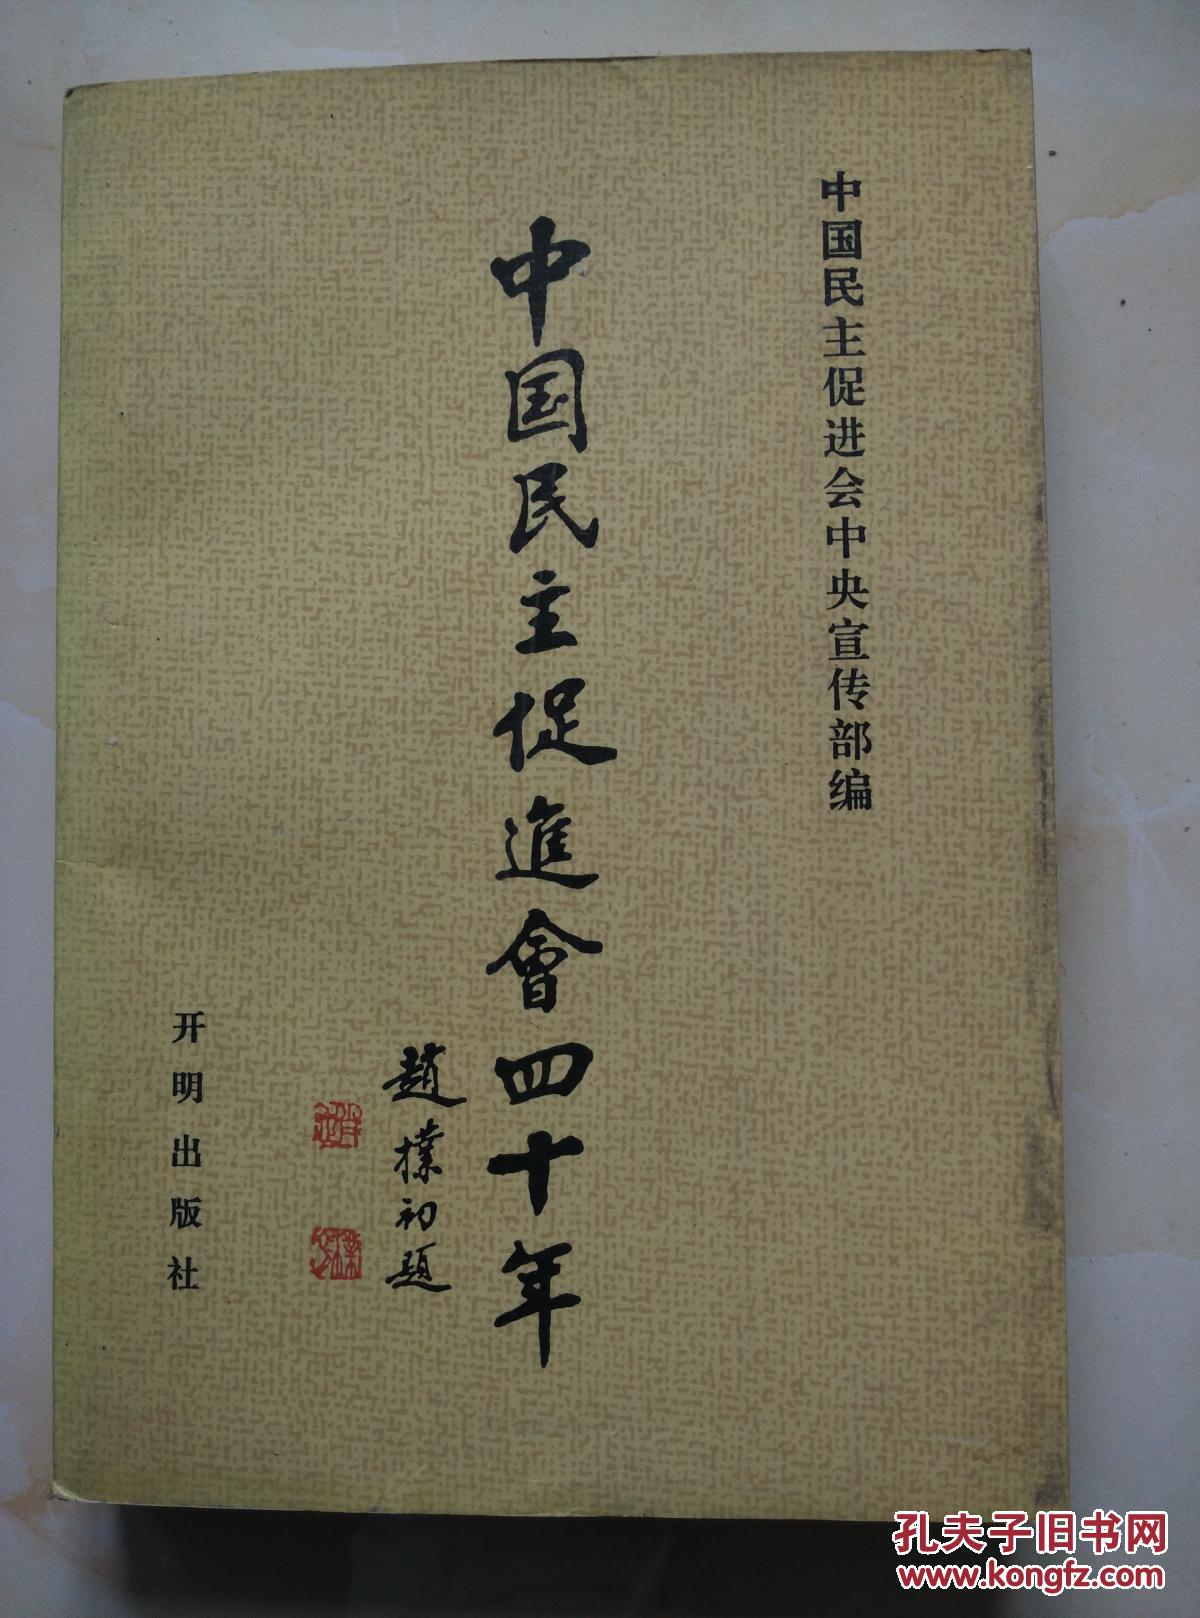 中国民主促进会中央宣传部编
中国民主促進會四十年
趙樸初题
开明出版社
孔夫子旧书网
www.kongfz.com